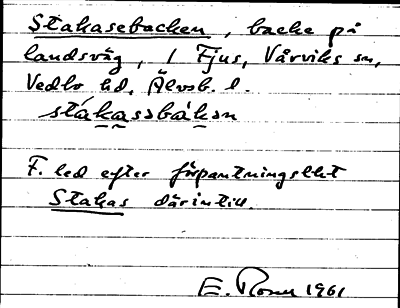 Stakasebacken, backe på
landsväg, i Fjus, Vårviks sn,
Vedbo hd, Älvsb. l.
stákassbákən
F. led efter förpantningslht
Stakas därintill.
E. 1961